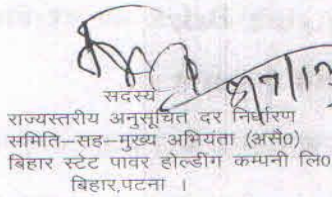 सदस्य
राज्यस्तरीय अनुसूचित दर निर्धारण
समिति–सह–मुख्य अभियंता (असै0)
बिहार स्टेट पावर होल्डींग कम्पनी लि0
बिहार,पटना ।